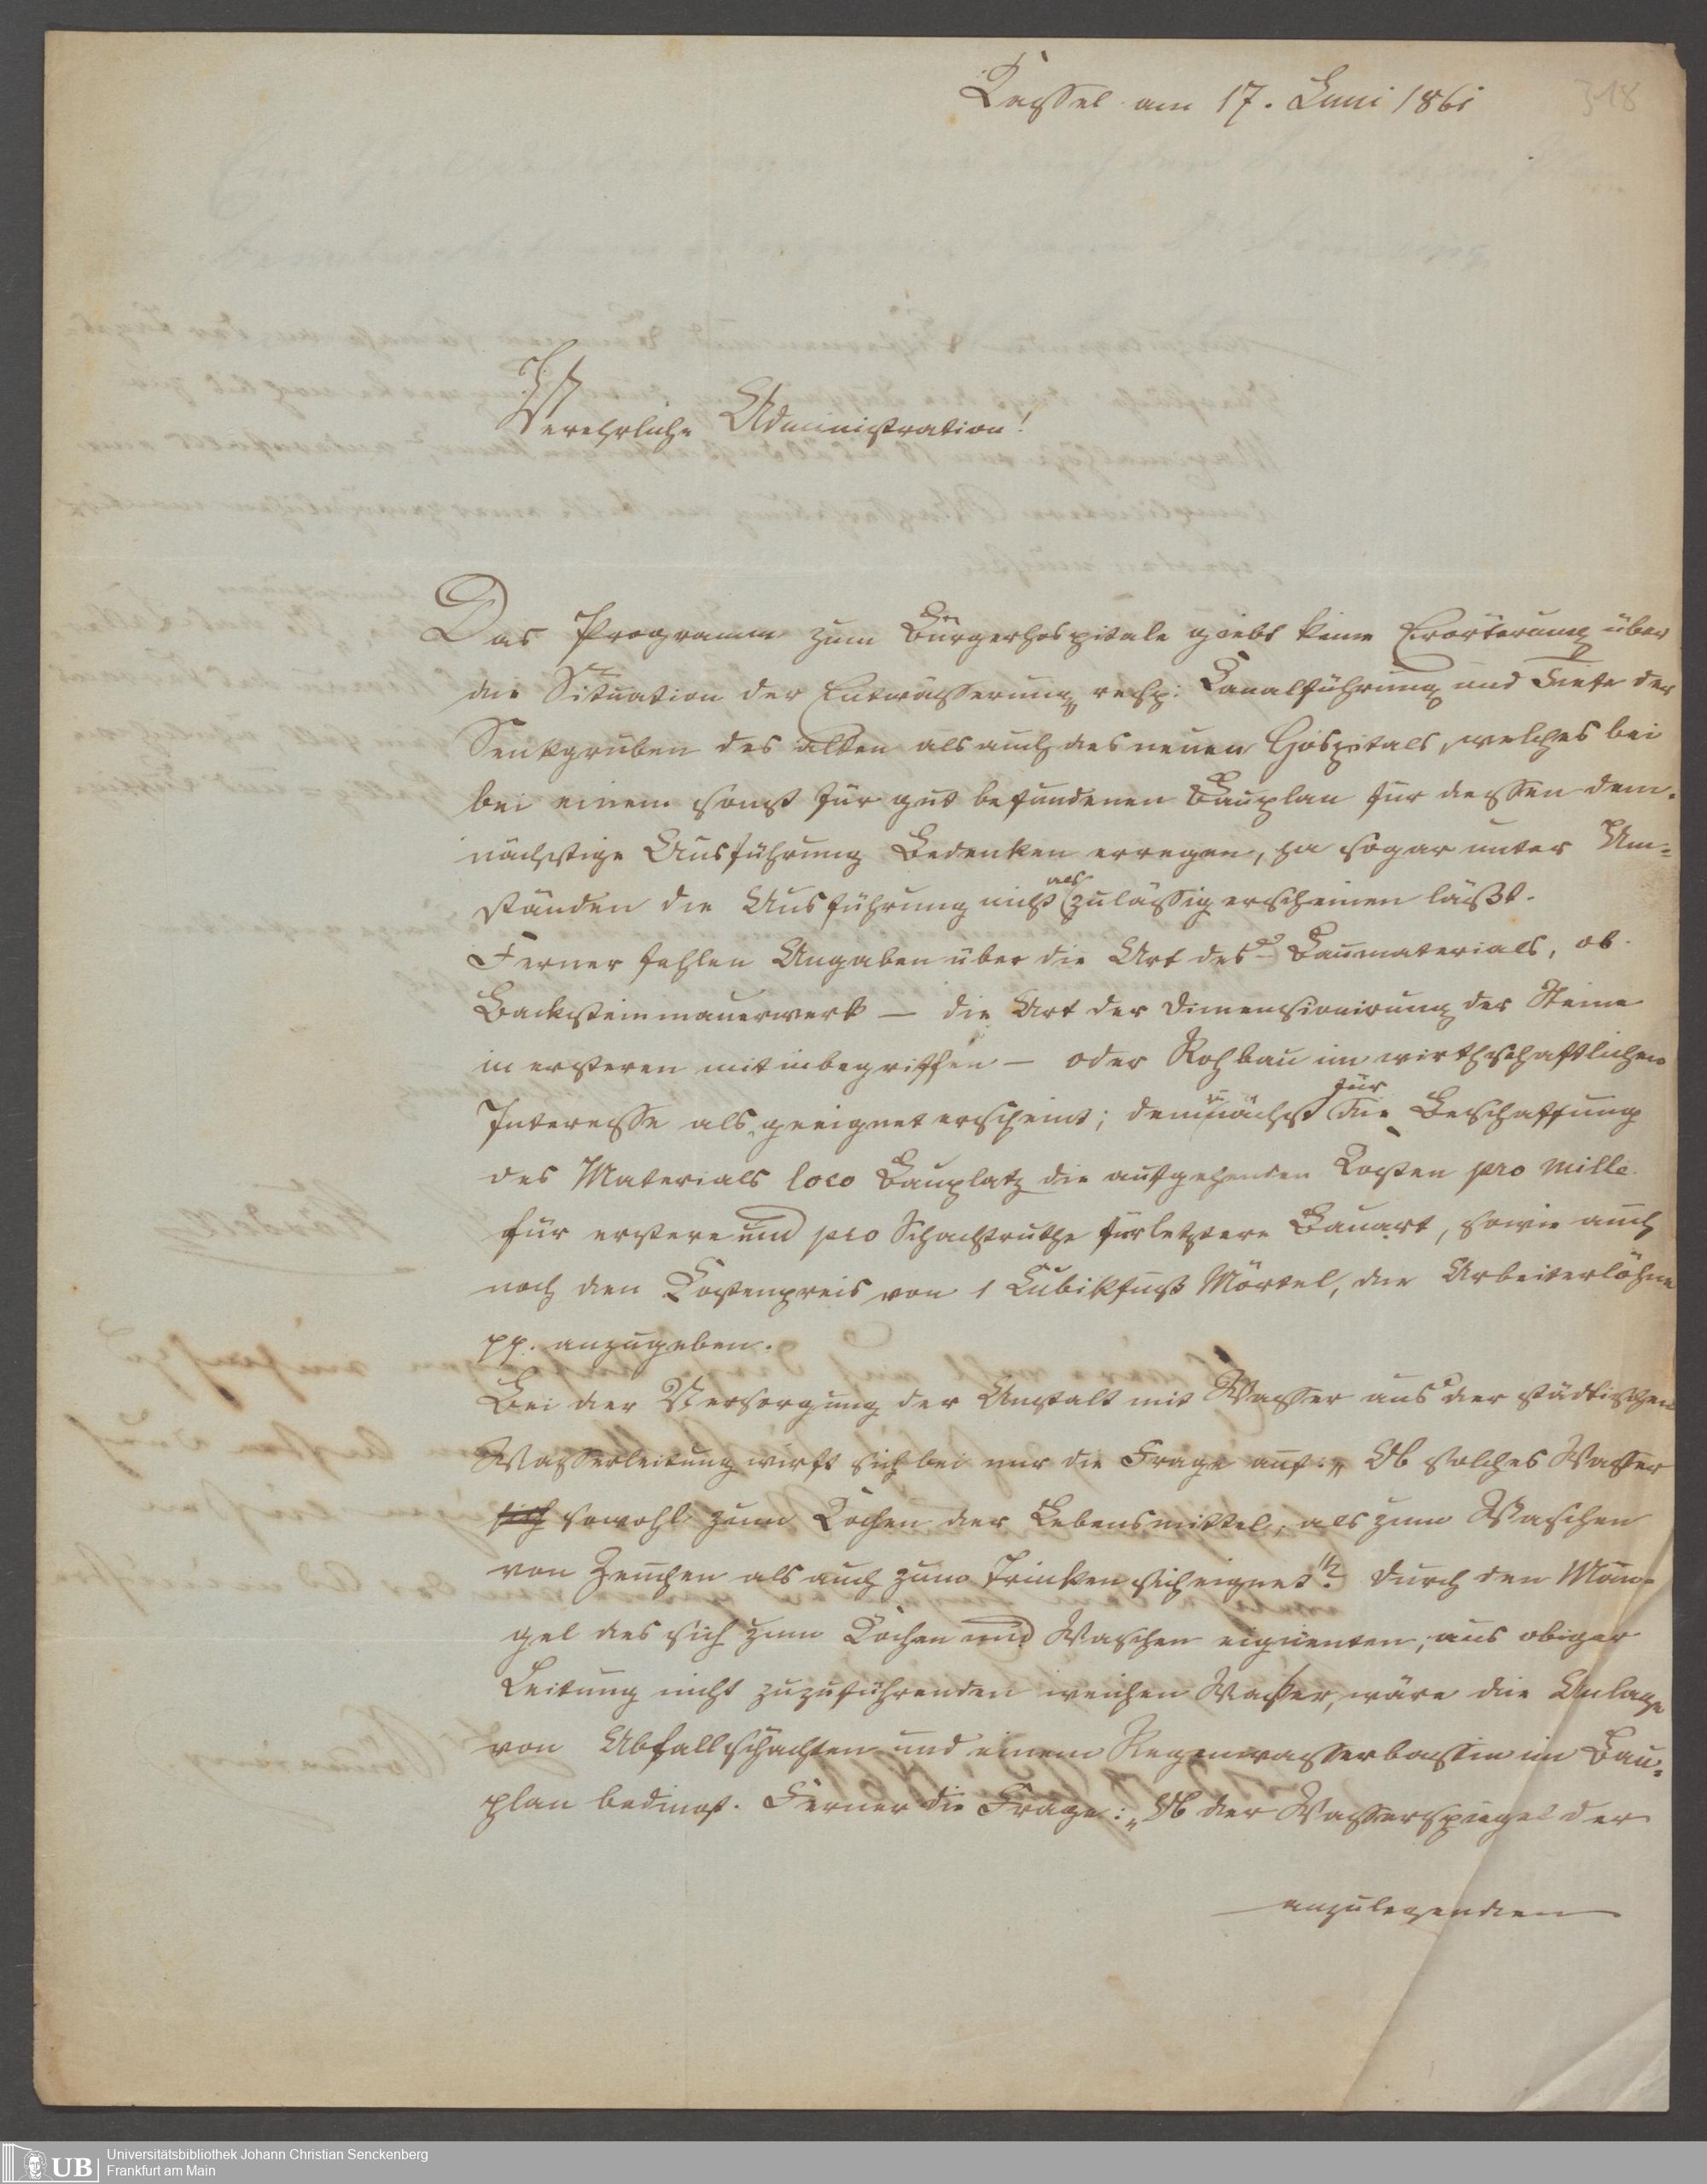 318
Cassel am 17. Juni 1861
Verehrliche Administration!
Das Programm zum Bürgerhospitale giebt keine Erörterung über
die Situation der Entwässerung resp: Canalführung und Tiefe der
Senkgruben des alten als auch des neuen Hospitals, welches bei
bei einem sonst für gut befundenen Bauplan für dessen dem-
nächstige Ausführung Bedenken erregen, ja sogar unter Um=
ständen die Ausführung nicht als zulässig erscheinen läßt.
Ferner fehlen Angaben über die Art des Baumaterials, ob
Backsteinmauerwerk — die Art der Dimensionirung der Steine
in ersteren mitinbegriffen — oder Rohbau im wirthschaftlichen
Interesse als geeignet erscheint; demnächst für die Beschaffung
des Materials loco Bauplatz die aufgehenden Kosten pro mille
für erstere und pro Schachtruthe für letztere Bauart, sowie auch
noch den Kostenpreis von 1 Cubikfuß Mörtel, die Arbeiterlöhne
pp. anzugeben.
Bei der Versorgung der Anstalt mit Wasser aus der städtischen
Wasserleitung wirft sich bei mir die Frage auf: „Ob solches Wasser
sich sowohl zum Kochen der Lebensmittel, als zum Waschen
von Zeuchen als auch zum Trinken sich eignet"? Durch den Man-
gel des sich zum Kochen und Waschen eignenten, aus obiger
Leitung nicht zuzuführenden weichen Wasser, wäre die Anlage
von Abfallschachten und einem Regenwasserbassin im Bau-
plan bedingt. Ferner die Frage: „Ob der Wasserspiegel der
anzulegenden
UB Universitätsbibliothek Johann Christian Senckenberg
Frankfurt am Main